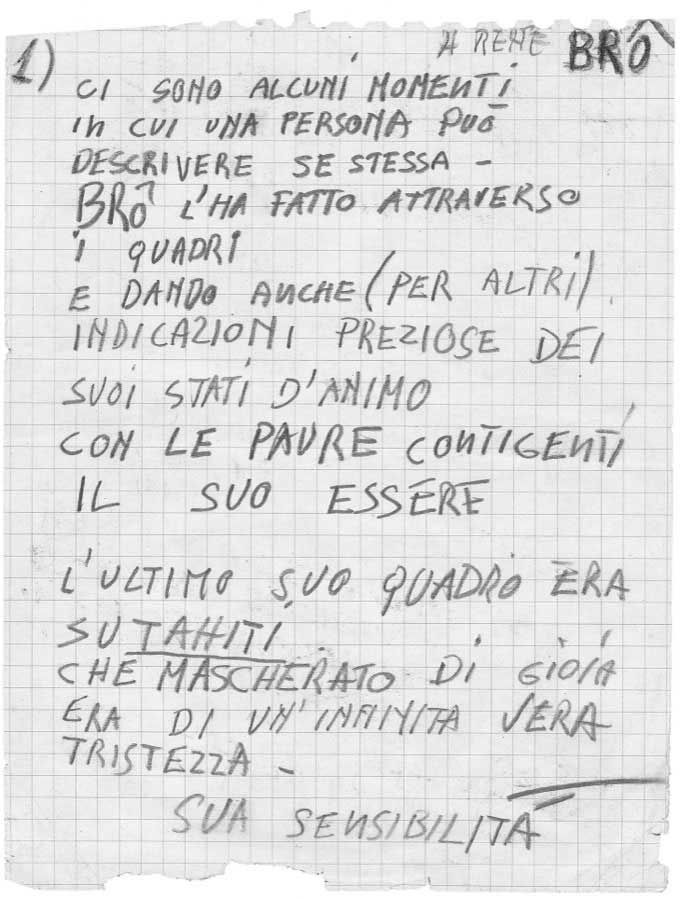 A RENE BRÔ
1) CI SONO ALCUNI MOMENTI
IN CUI UNA PERSONA PUÒ
DESCRIVERE SE STESSA -
BRÔ L'HA FATTO ATTRAVERSO
I QUADRI
E DANDO ANCHE (PER ALTRI)
INDICAZIONI PREZIOSE DEI
SUOI STATI D'ANIMO
CON LE PAURE CONTIGENTI
IL SUO ESSERE
L'ULTIMO SUO QUADRO ERA
SU TAHITI
CHE MASCHERATO DI GIOIA
ERA DI UN'INFINITA VERA
TRISTEZZA -
SUA SENSIBILITÀ